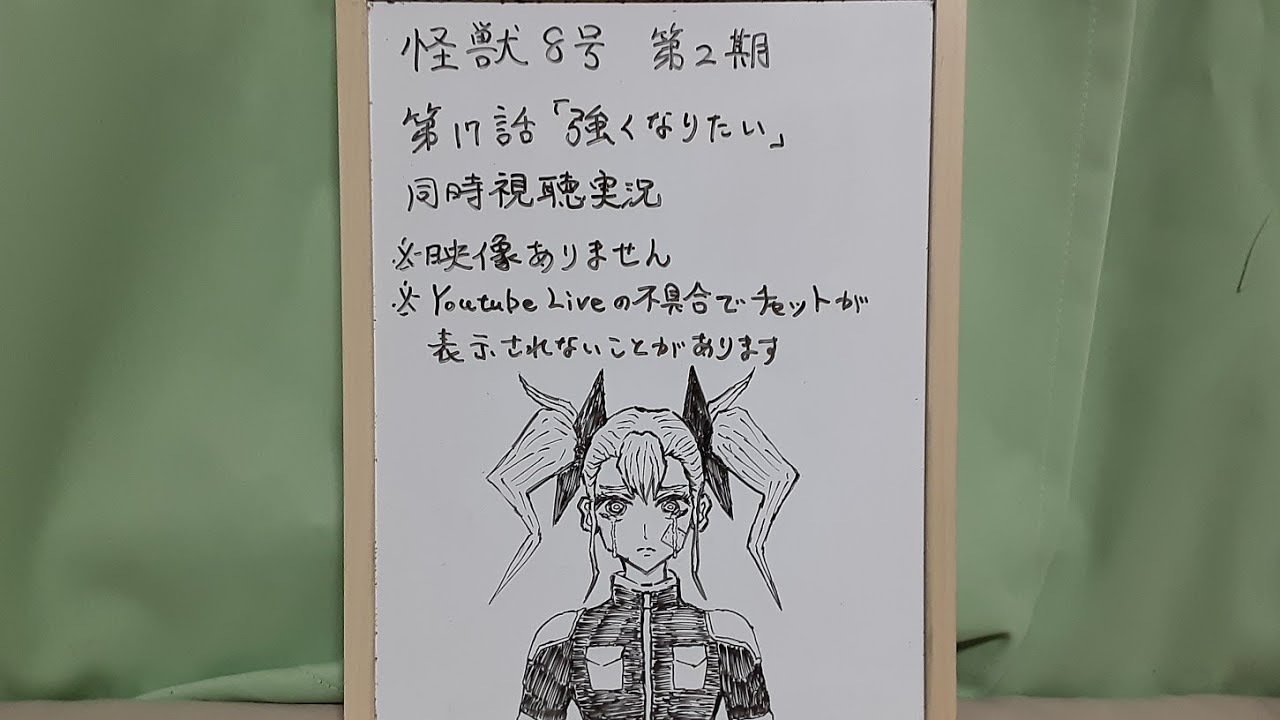 怪獣8号 第2期
第17話「強くなりたい」
同時視聴実況
※映像ありません
※Youtube Liveの不具合でチャットが
表示されないことがあります